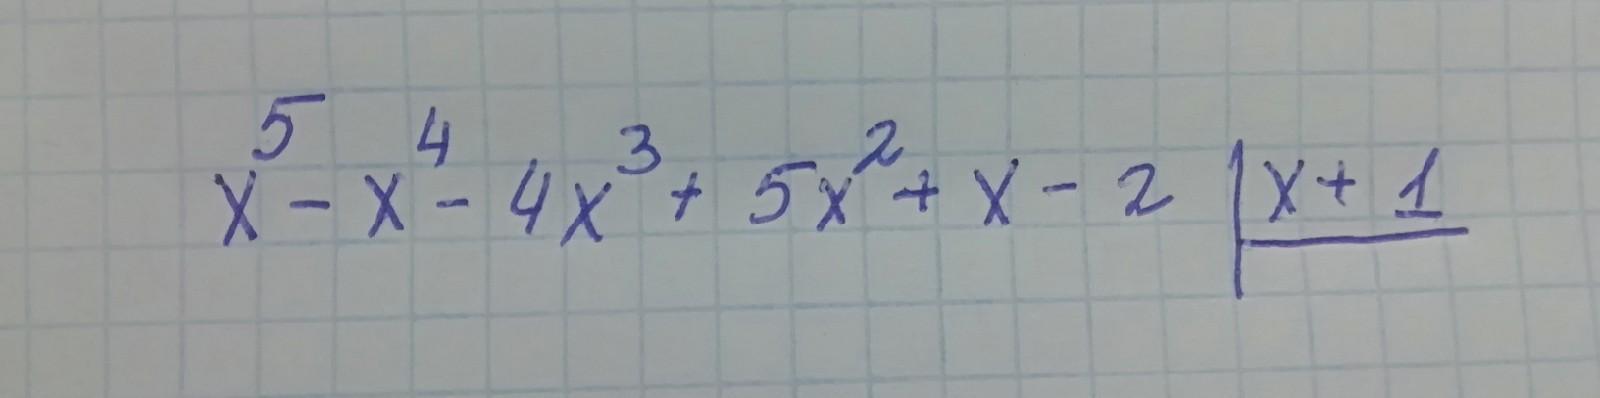 x⁵ - x⁴ - 4x³ + 5x² + x - 2 | x + 1